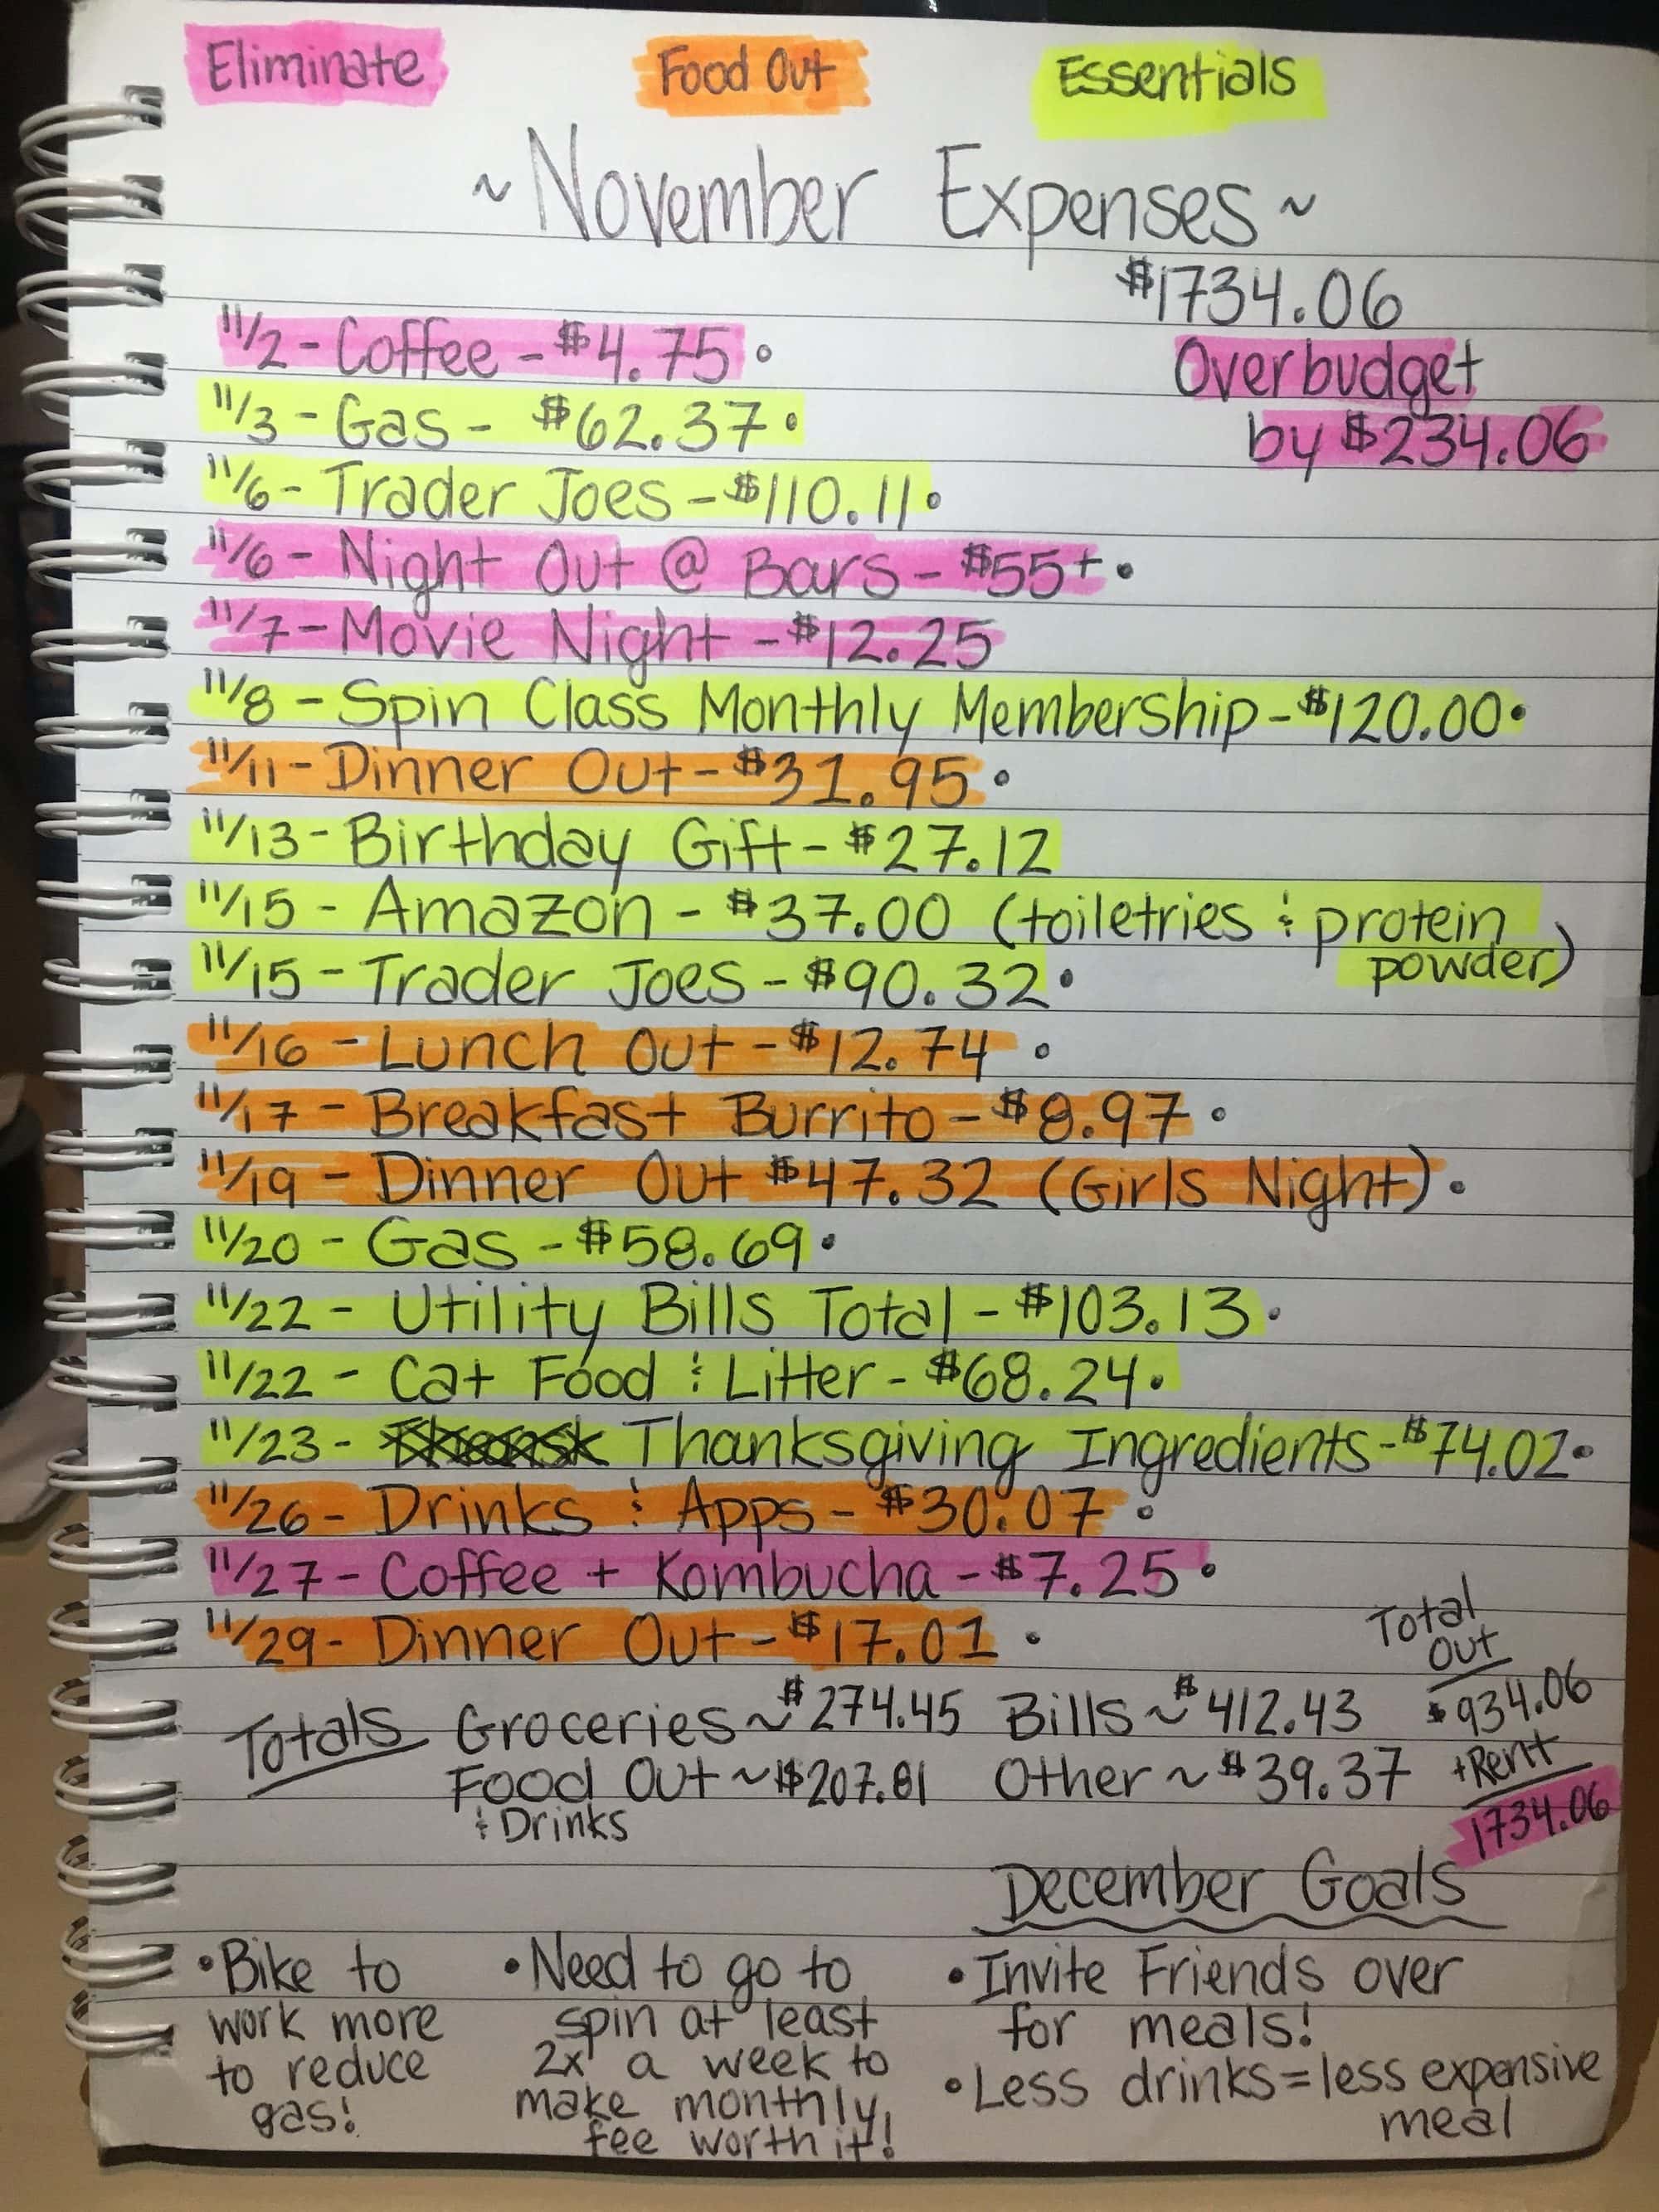 Eliminate Food Out Essentials
~November Expenses~
$1734.06
11/2 - Coffee - $4.75
Overbudget
11/3 - Gas - $62.37
by $234.06
11/6 - Trader Joes - $110.11
11/6 - Night Out @ Bars - $55+
11/7 - Movie Night - $12.25
11/8 - Spin Class Monthly Membership - $120.00
11/11 - Dinner Out - $31.95
11/13 - Birthday Gift - $27.12
11/15 - Amazon - $37.00 (toiletries & protein
powder)
11/15 - Trader Joes - $90.32
11/16 - Lunch Out - $12.74
11/17 - Breakfast Burrito - $8.97
11/19 - Dinner Out $47.32 (Girls Night)
11/20 - Gas - $58.69
11/22 - Utility Bills Total - $103.13
11/22 - Cat Food & Litter - $68.24
11/23 - Thanksgiving Ingredients - $74.02
11/26 - Drinks & Apps - $30.07
11/27 - Coffee + Kombucha - $7.25
11/29 - Dinner Out - $17.01
Total
Out
$934.06
+Rent
1734.06
Totals Groceries ~ $274.45 Bills ~ $412.43
Food Out ~ $207.81 Other ~ $39.37
& Drinks
December Goals
• Bike to
work more
to reduce
gas!
• Need to go to
spin at least
2x a week to
make monthly
fee worth it!
• Invite Friends over
for meals!
• Less drinks = less expensive
meal